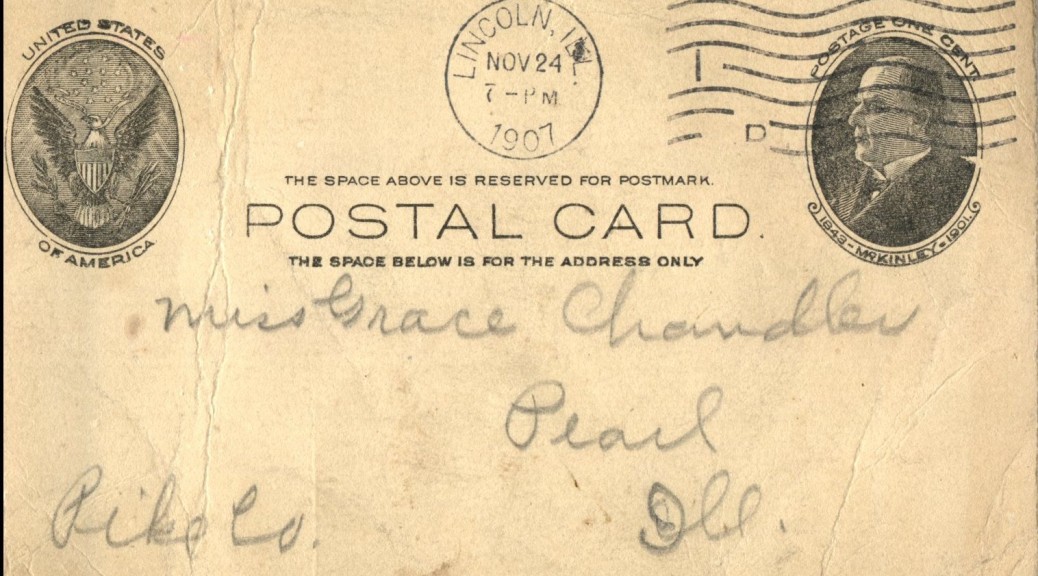 UNITED STATES
OF AMERICA
LINCOLN, ILL.
NOV 24
7-PM
1907
D
POSTAGE ONE CENT.
1843-McKINLEY-1901.
THE SPACE ABOVE IS RESERVED FOR POSTMARK.
POSTAL CARD.
THE SPACE BELOW IS FOR THE ADDRESS ONLY
Miss Grace Chandler
Pearl
Pike Co. Ill.